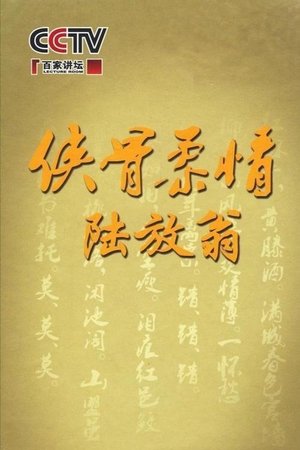 CCTV
百家讲坛
LECTURE ROOM
侠骨柔情
陆放翁
黄縢酒，满城春色宫墙
情薄。一怀愁
错、错、错
瘦。泪痕红浥鲛
闲池阁。山盟虽
难托。莫、莫、莫